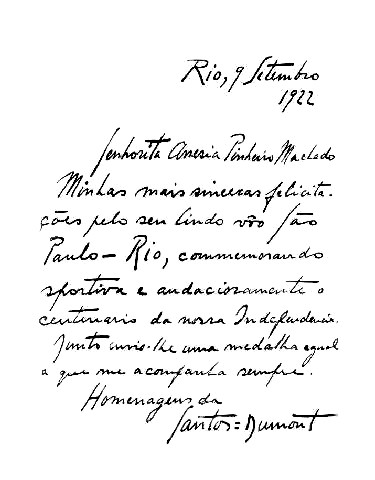 Rio, 9 Setembro
1922
Senhorita Anesia Pinheiro Machado
Minhas mais sinceras felicita-
ções pelo seu lindo vôo São
Paulo - Rio, commemorando
sportiva e audaciosamente o
centenario da nossa Independencia.
Junto envio-lhe uma medalha egual
a que me acompanha sempre.
Homenagens da
Santos=Dumont